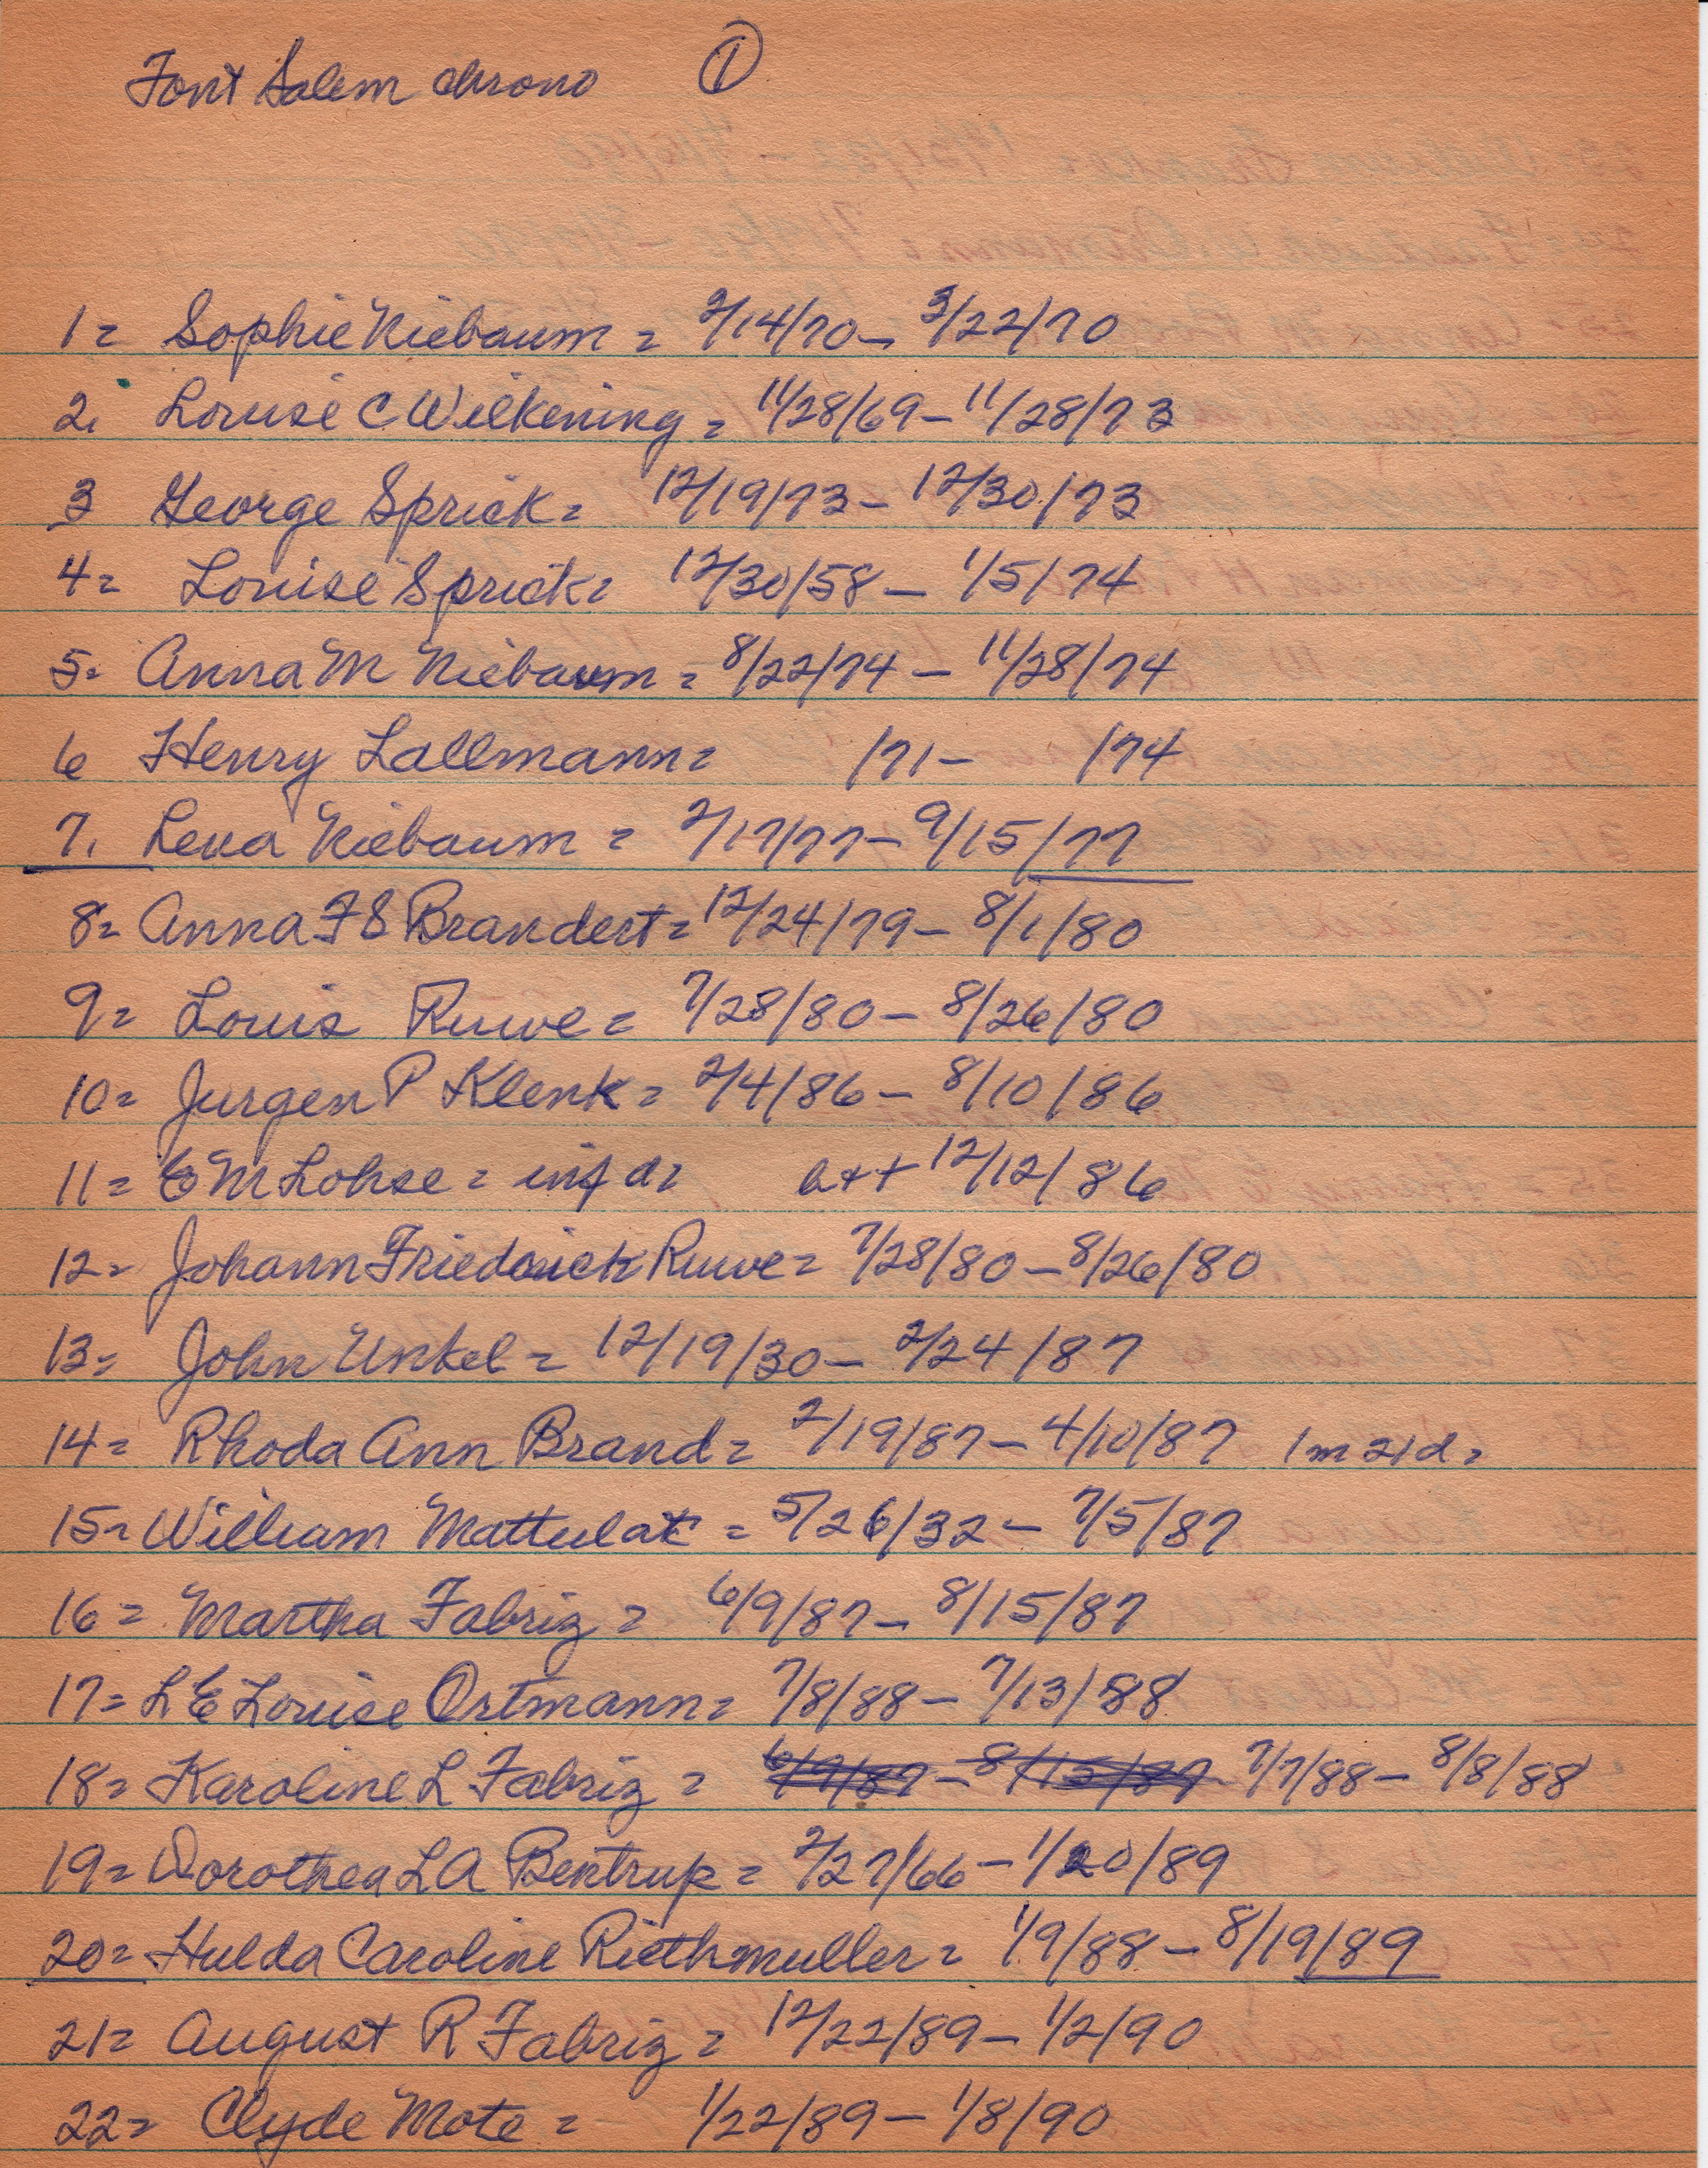 Font Salem chrono ①
1= Sophie Niebaum = 2/14/70 - 3/22/70
2. Louise C Wilkening = 11/28/69 - 11/28/73
3 George Sprick = 12/19/73 - 12/30/73
4= Louise Sprick = 12/30/58 - 1/5/74
5= Anna M Niebaum = 8/22/74 - 11/28/74
6 Henry Lallmann = /71 - /74
7. Lena Niebaum = 2/17/77 - 9/15/77
8= Anna F S Brandert = 12/24/79 - 8/1/80
9= Louis Ruwe = 7/28/80 - 8/26/80
10= Jurgen P Klenk = 2/4/86 - 8/10/86
11= E M Lohse = inf d = 12/12/86
12= Johann Friedrick Ruwe = 7/28/80 - 8/26/80
13= John Unkel = 12/19/30 - 2/24/87
14= Rhoda Ann Brand = 2/19/87 - 4/10/87 1m 21d =
15= William Mattulat = 5/26/32 - 7/5/87
16= Martha Fabriz = 6/9/87 - 8/15/87
17= L E Louise Ortmann = 7/8/88 - 7/13/88
18= Karoline L Fabriz = 6/9/87 - 8/15/87 7/7/88 - 8/8/88
19= Dorothea L A Bentrup = 2/27/66 - 1/20/89
20= Hulda Caroline Riethmuller = 1/9/88 - 8/19/89
21= August R Fabriz = 12/22/89 - 1/2/90
22= Clyde Mote = 1/22/89 - 1/8/90